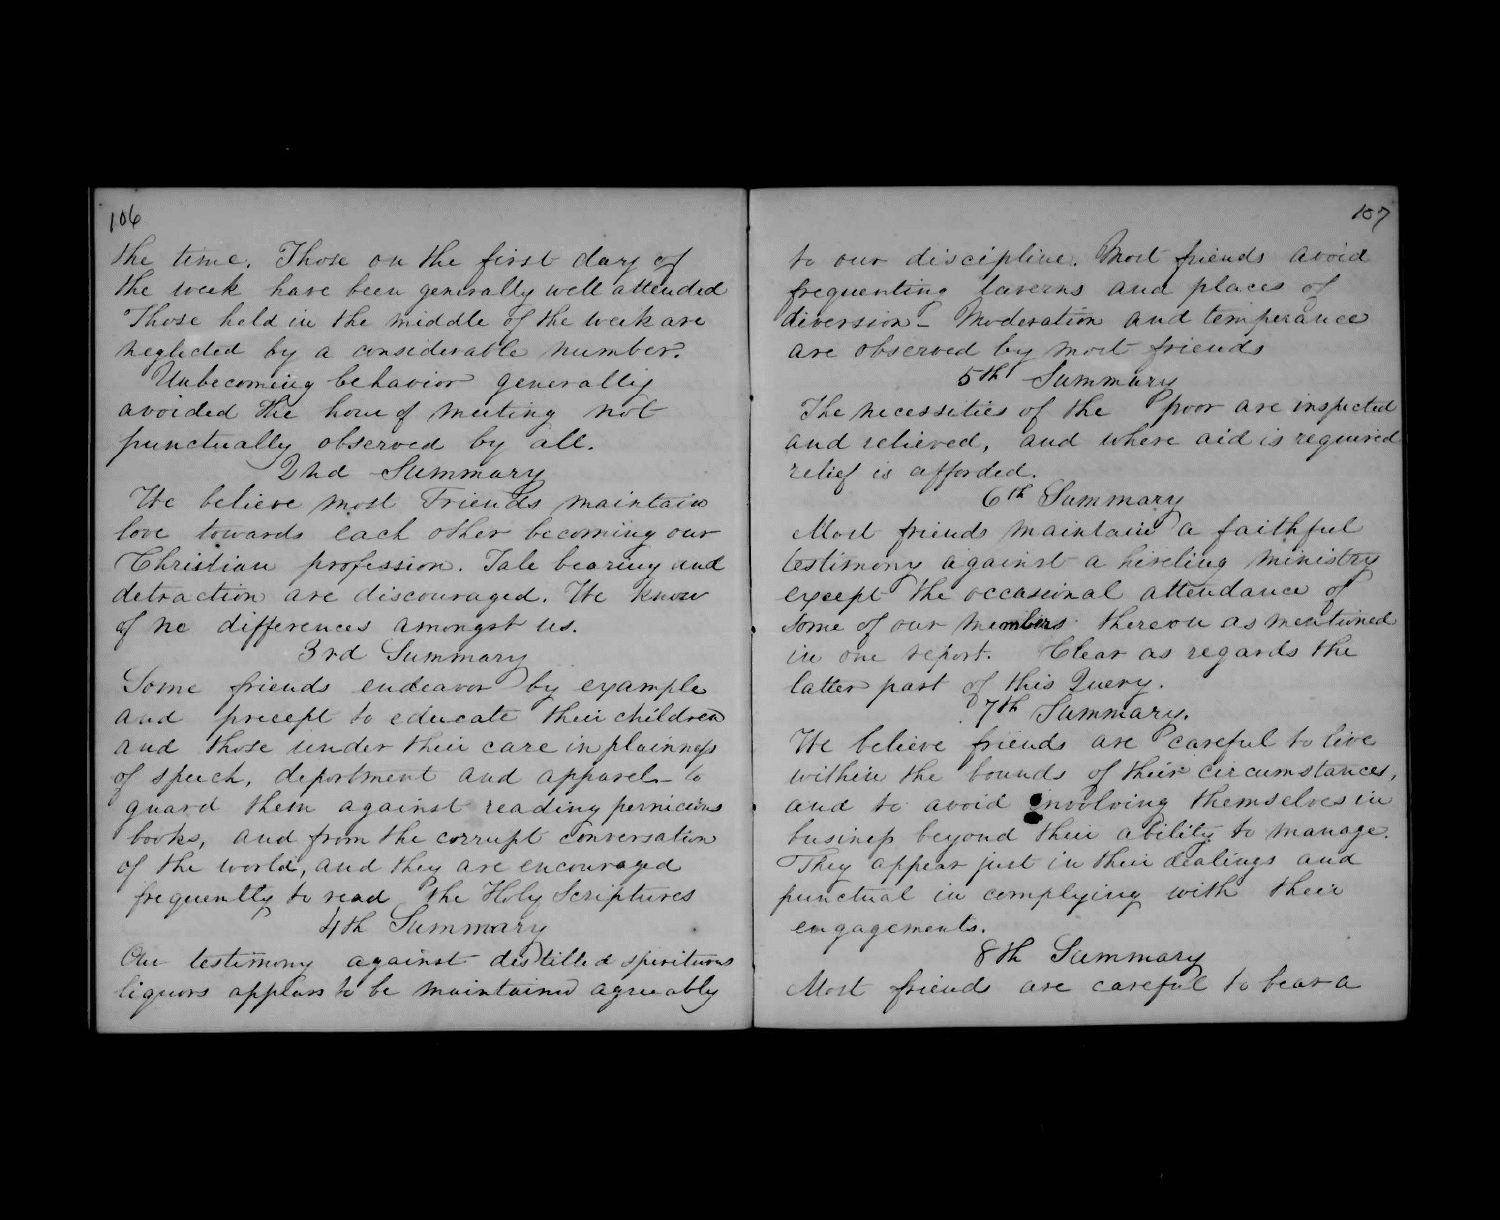 106
the time. Those on the first day of
the week have been generally well attended
Those held in the middle of the week are
neglected by a considerable number.
Unbecoming behavior generally
avoided the hour of meeting not
punctually observed by all.
2nd Summary
We believe most Friends maintain
love towards each other becoming our
Christian profession. Tale bearing and
detraction are discouraged. We know
of no differences amongst us.
3rd Summary
Some friends endeavor by example
and precept to educate their children
and those under their care in plainness
of speech, deportment and apparel - to
guard them against reading pernicious
books, and from the corrupt conversation
of the world, and they are encouraged
frequently to read the Holy Scriptures
4th Summary
Our testimony against distilled spirituous
liquors appears to be maintained agreeably
107
to our discipline. Most friends avoid
frequenting taverns and places of
diversion - Moderation and temperance
are observed by most friends
5th Summary
The necessities of the poor are inspected
and relieved, and where aid is required
relief is afforded.
6th Summary
Most friends maintain a faithful
testimony against a hireling ministry
except the occasional attendance of
some of our members thereon as mentioned
in one report. Clear as regards the
latter part of this Query.
7th Summary.
We believe friends are careful to live
within the bounds of their circumstances,
and to avoid involving themselves in
business beyond their ability to manage.
They appear just in their dealings and
punctual in complying with their
engagements.
8th Summary
Most friends are careful to bear a